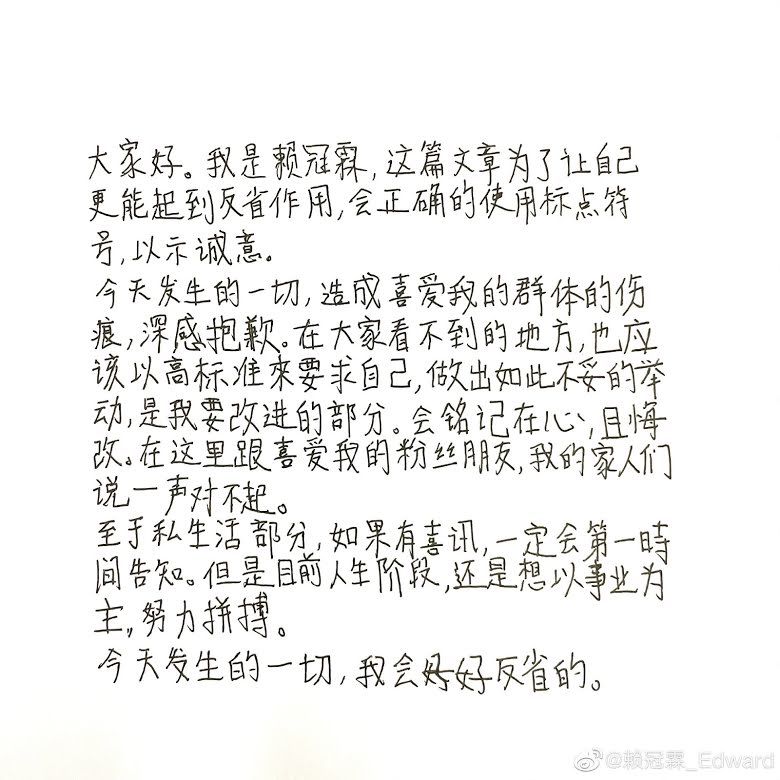 大家好。我是赖冠霖,这篇文章为了让自己
更能起到反省作用,会正确的使用标点符
号,以示诚意。
今天发生的一切,造成喜爱我的群体的伤
痕,深感抱歉。在大家看不到的地方,也应
该以高标准来要求自己,做出如此不妥的举
动,是我要改进的部分。会铭记在心,且悔
改。在这里跟喜爱我的粉丝朋友,我的家人们
说一声对不起。
至于私生活部分,如果有喜讯,一定会第一時
间告知。但是目前人生阶段,还是想以事业为
主,努力拼搏。
今天发生的一切,我会好好反省的。
@赖冠霖_Edward